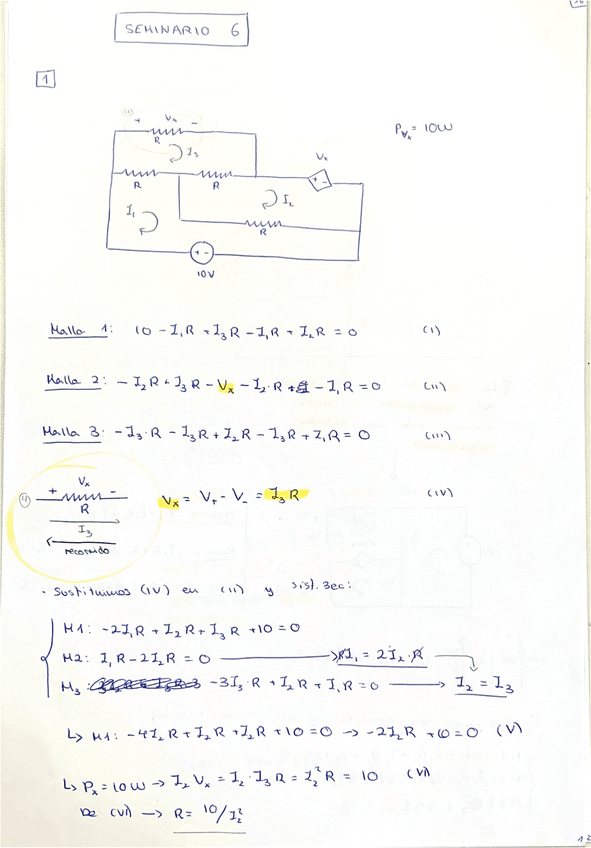 SEMINARIO 6
1
(4)
+ Vx -
R
Pvx = 10W
I3
Vx
R
R
+ -
I1
I2
R
+ -
10V
Malla 1: 10 - I1R + I3R - I1R + I2R = 0 (I)
Malla 2: - I2R + I3R - Vx - I2·R + - I1R = 0 (II)
Malla 3: - I3·R - I3R + I2R - I3R + I1R = 0 (III)
Vx
(4) + -
R
Vx = V+ - V- = I3R (IV)
I3
recorrido
· Sustituimos (IV) en (II) y sist. 3ec:
M1: -2I1R + I2R + I3R + 10 = 0
M2: I1R - 2I2R = 0 → I1 = 2I2·R
M3: -3I3·R + I2R + I1R = 0 → I2 = I3
↳ M1: -4I2R + I2R + I2R + 10 = 0 → -2I2R + 10 = 0 (V)
↳ Px = 10W → I2Vx = I2·I3R = I2²R = 10 (VI)
De (VI) → R = 10/I2²